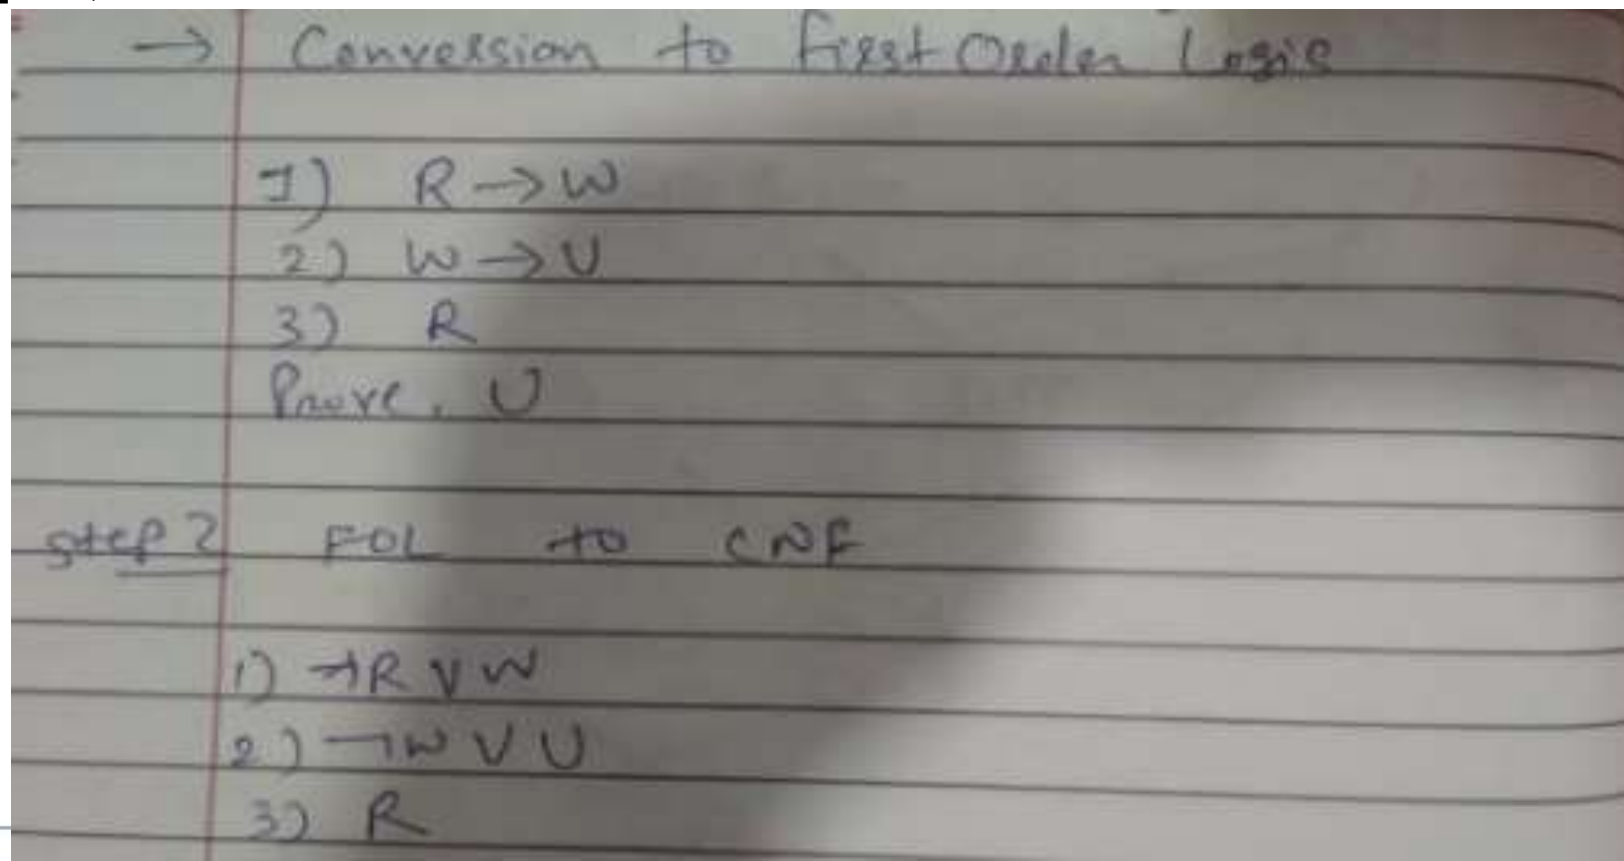 → Conversion to First Order Logic
1) R → W
2) W → U
3) R
Prove. U
step 2 FOL to CNF
1) ¬R ∨ W
2) ¬W ∨ U
3) R